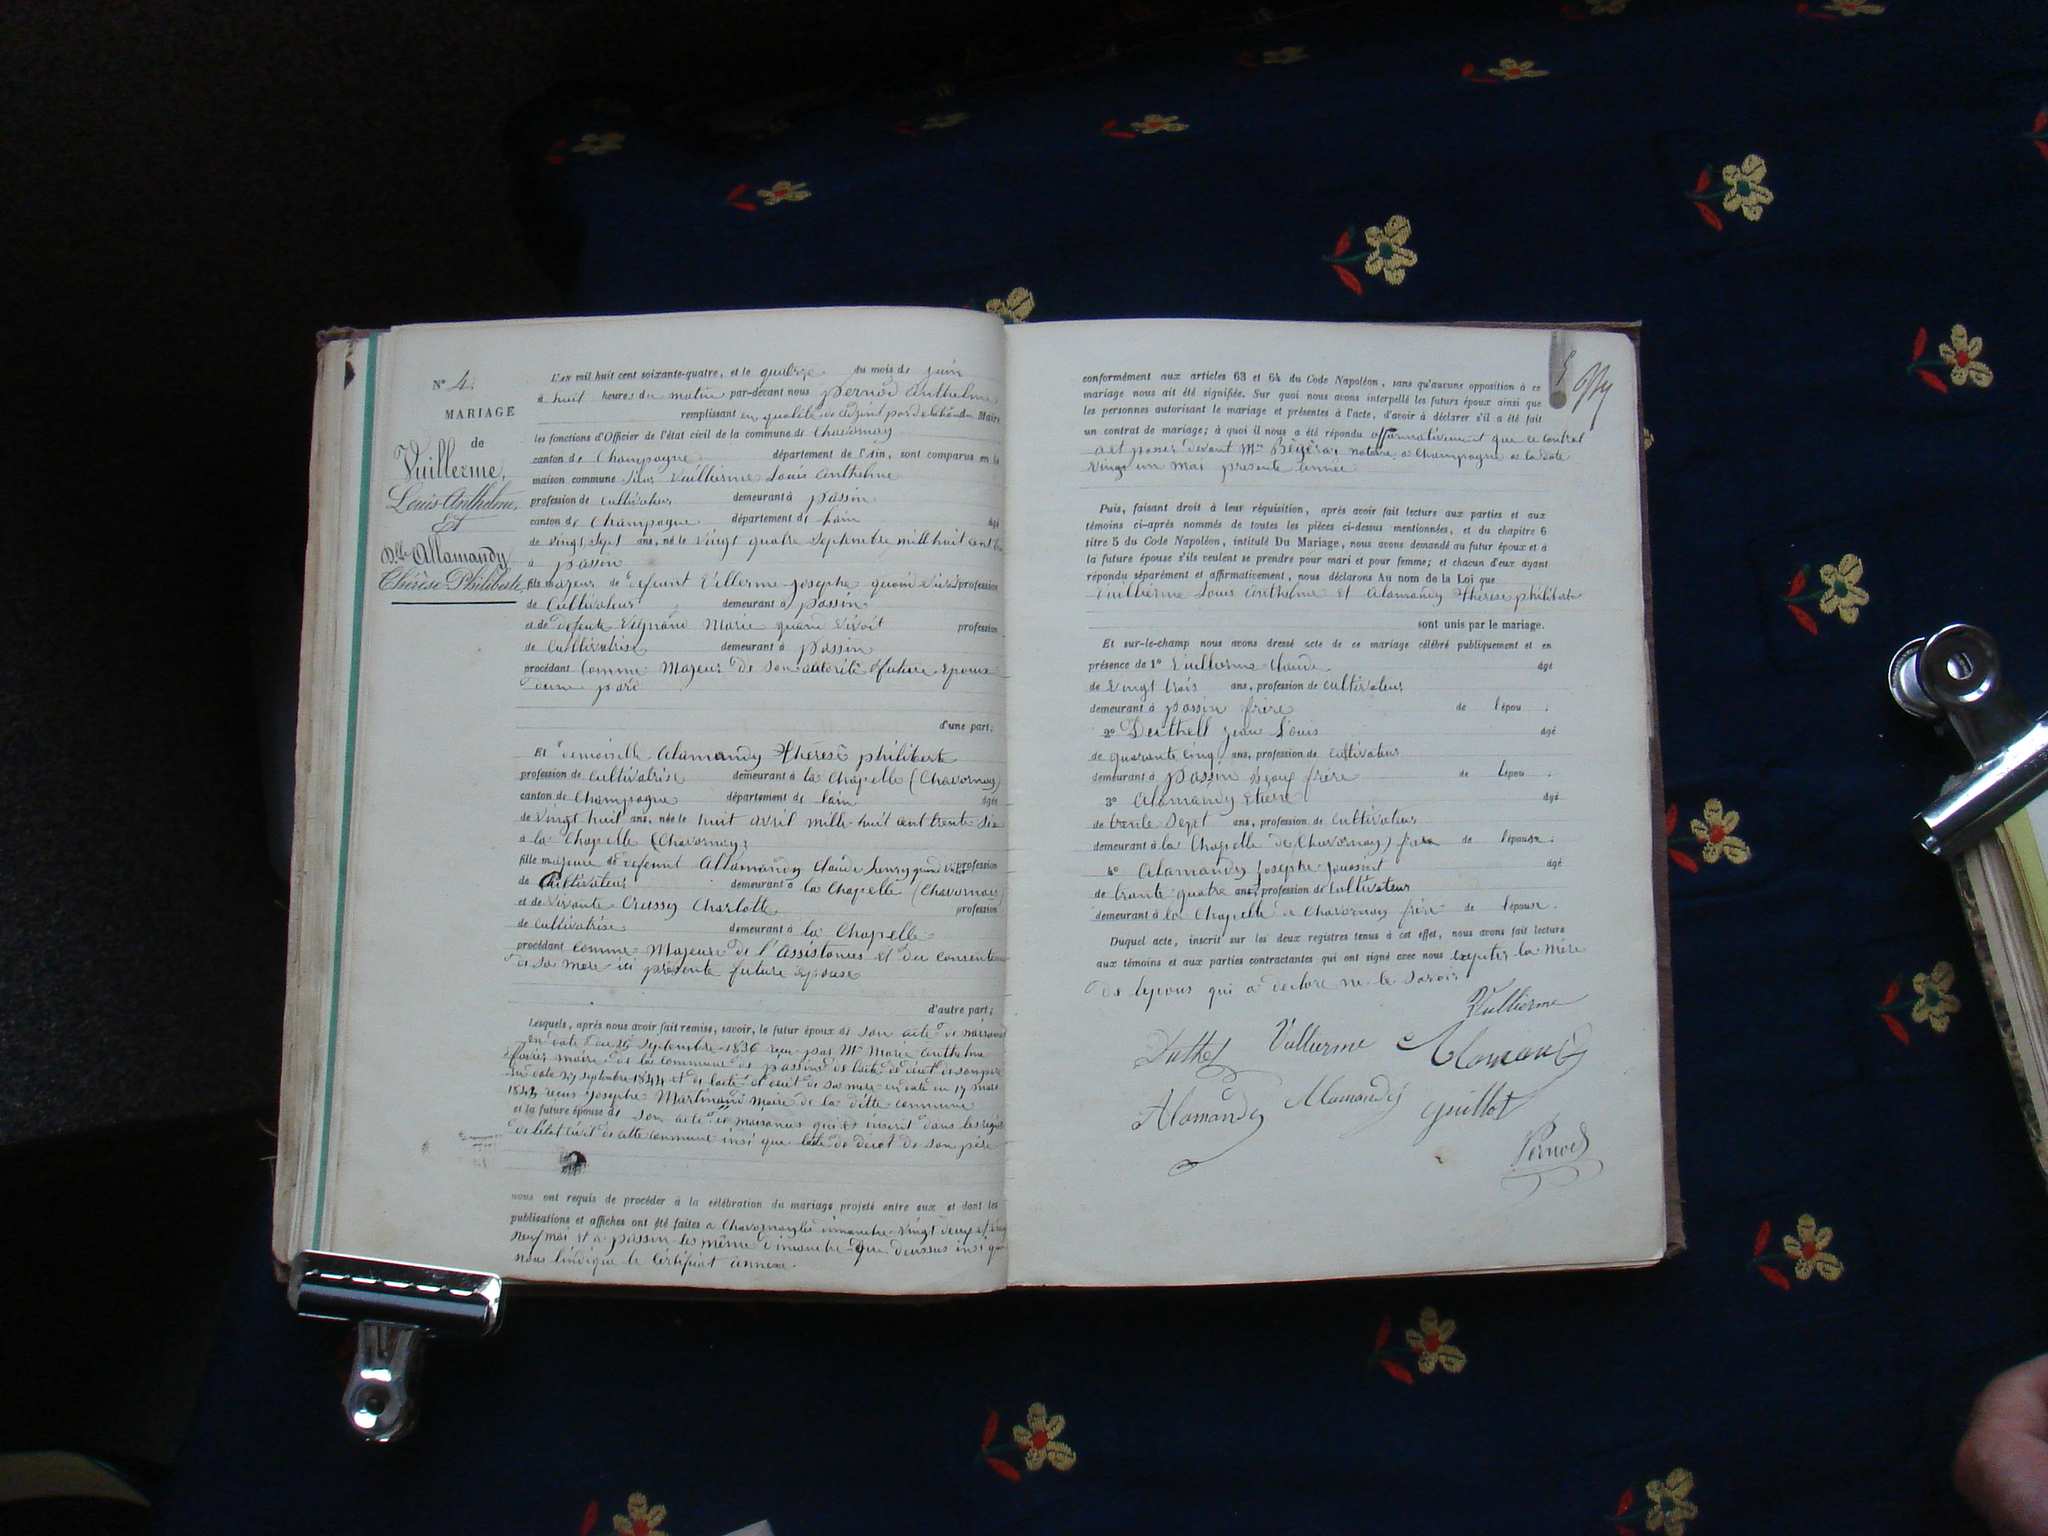 N° 4.
MARIAGE
de
Vuillerme,
Louis-Anthelme,
Et
Dlle Allamandy
Thérèse-Philiberte,
L'an mil huit cent soixante-quatre, et le quatorze du mois de juin
à huit heures du matin par-devant nous pernod Anthelme
remplissant en qualité de adjoint par délégation du Maire
les fonctions d'Officier de l'état civil de la commune de Chavornay
canton de Champagne département de l'Ain, sont comparus en la
maison commune Sieur Vuillerme Louis Anthelme
profession de Cultivateur demeurant à passin
canton de Champagne département de lain âgé
de vingt sept ans, né le vingt quatre septembre mill huit cent
à passin
fils majeur de defeunt Vellerme Josephe quand vivoit profession
de Cultivateur demeurant à passin
et de defeute Vignand Marie quand vivoit profession
de Cultivatrise demeurant à passin
procédant Comme Majeur De Son autorité future Epoux
dune part
d'une part;
Et demoiselle Alamandy thérèse philiberte
profession de Cultivatrise demeurant à la Chapelle (Chavornay)
canton de Champagne département de lain âgée
de vingt huit ans, née le huit avril mille huit cent trente six
à la Chapelle (Chavornay)
fille majeure de defeunt Allamandy Claude henry quand vivoit profession
de Cultivateur demeurant à la Chapelle (Chavornay)
et de vivante Crussy Charlotte profession
de Cultivatrise demeurant à la Chapelle
procédant Comme Majeure de l'Assistances et du consente
de sa mere ici présente future Epouse
d'autre part;
Lesquels, après nous avoir fait remise, savoir, le futur époux de son acte de naissance
en date du 24 Septembre 1836 reçu par Mr Marie Anthelme
maire de la commune de passin de lacte de décet de son père
en date 27 septembre 1844 et de lacte de décet de sa mere en date du 17 mars
1843 reçus Josephe Martinand Maire de la ditte commune
et la future épouse de son acte de naisances qui est inscrit dans les registres
de létat civil de cette commune insi que lacte de decet de son père
nous ont requis de procéder à la célébration du mariage projeté entre eux et dont les
publications et affiches ont été faites à Chavornay les dimanche vingt deux et vingt
neuf mai et à passin les même dimanche que deussus insi que
nous lindique le certificat annexe.
conformément aux articles 63 et 64 du Code Napoléon, sans qu'aucune opposition à ce
mariage nous ait été signifiée. Sur quoi nous avons interpellé les futurs époux ainsi que
les personnes autorisant le mariage et présentes à l'acte, d'avoir à déclarer s'il a été fait
un contrat de mariage; à quoi il nous a été répondu affirmativement que ce contrat
a et passer devant Mre notaire à Champagne a la date
vingt un Mai presente année
Puis, faisant droit à leur réquisition, après avoir fait lecture aux parties et aux
témoins ci-après nommés de toutes les pièces ci-dessus mentionnées, et du chapitre 6
titre 5 du Code Napoléon, intitulé Du Mariage, nous avons demandé au futur époux et à
la future épouse s'ils veulent se prendre pour mari et pour femme; et chacun d'eux ayant
répondu séparément et affirmativement, nous déclarons Au nom de la Loi que
Vuillerme Louis Anthelme et Alamandy thérèse philiberte
sont unis par le mariage.
Et sur-le-champ nous avons dressé acte de ce mariage célébré publiquement et en
présence de 1° Vuillerme Claude âgé
de vingt trois ans, profession de Cultivateur
demeurant à passin frère de l'épou .
2° Duthell jean Louis âgé
de quarante cinq ans, profession de Cultivateur
demeurant à passin Beaux frère de l'épou .
3° Alamandy âgé
de trente sept ans, profession de Cultivateur
demeurant à la Chapelle de (Chavornay) frère de l'épouse .
4° Alamandy Josephe âgé
de trante quatre ans, profession de Cultivateur
demeurant à la Chapelle a Chavornay frère de l'épouse .
Duquel acte, inscrit sur les deux registres tenus à cet effet, nous avons fait lecture
aux témoins et aux parties contractantes qui ont signé avec nous exepter la mère
de lepous qui a declore ne le savoir
Vullierme
Duthel Vullierme Alamandy
Alamandy Alamandy Guillot
Pernod